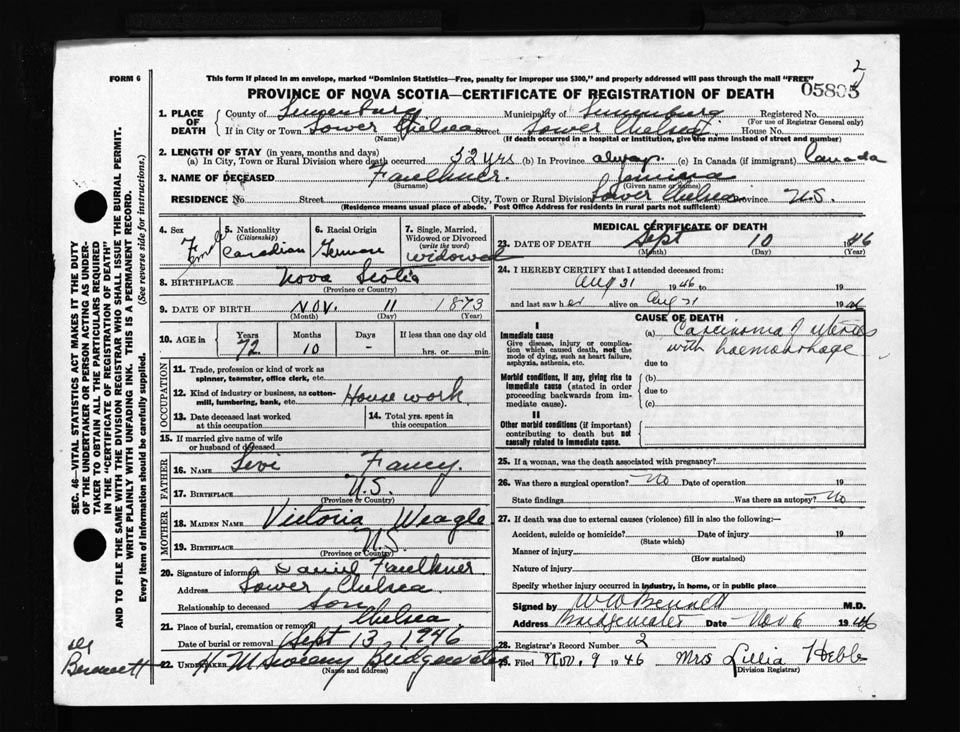 FORM 6
This form if placed in an envelope, marked "Dominion Statistics—Free, penalty for improper use $300," and properly addressed will pass through the mail "FREE"
2
05805
PROVINCE OF NOVA SCOTIA—CERTIFICATE OF REGISTRATION OF DEATH
1. PLACE OF DEATH
County of Lunenburg Municipality of Lunenburg Registered No.
(For use of Registrar General only)
If in City or Town Lower Chelsea Street Lower Chelsea House No.
(Name) (If death occurred in a hospital or institution, give the name instead of street and number)
2. LENGTH OF STAY (in years, months and days)
(a) In City, Town or Rural Division where death occurred 52 yrs (b) In Province always (c) In Canada (if immigrant) Canada
3. NAME OF DECEASED Faulkner. Jemima
(Surname) (Given name or names)
RESIDENCE No Street City, Town or Rural Division Lower Chelsea Province N.S.
(Residence means usual place of abode. Post Office Address for residents in rural parts not sufficient)
4. Sex Fem
5. Nationality (Citizenship) Canadian
6. Racial Origin German
7. Single, Married, Widowed or Divorced (write the word) widowed
8. BIRTHPLACE Nova Scotia
(Province or Country)
9. DATE OF BIRTH Nov. 11 1873
(Month) (Day) (Year)
10. AGE in Years Months Days If less than one day old
72 10 - hrs. or min.
OCCUPATION
11. Trade, profession or kind of work as spinner, teamster, office clerk, etc.
12. Kind of industry or business, as cotton-mill, lumbering, bank, etc. House work
13. Date deceased last worked at this occupation
14. Total yrs. spent in this occupation
15. If married give name of wife or husband of deceased
FATHER
16. NAME Levi Fancy.
17. BIRTHPLACE N.S.
(Province or Country)
MOTHER
18. MAIDEN NAME Victoria Weagle
19. BIRTHPLACE N.S.
(Province or Country)
20. Signature of informant Daniel Faulkner
Address Lower Chelsea
Relationship to deceased son
21. Place of burial, cremation or removal Chelsea
Date of burial or removal Sept 13 1946
22. UNDERTAKER H M Sweeny Bridgewater
(Name and address)
MEDICAL CERTIFICATE OF DEATH
23. DATE OF DEATH Sept 10 1946
(Month) (Day) (Year)
24. I HEREBY CERTIFY that I attended deceased from:
Aug 31 1946 to 19
and last saw her alive on Aug 31 1946
CAUSE OF DEATH
I
Immediate cause
Give disease, injury or complication which caused death, not the mode of dying, such as heart failure, asphyxia, asthenia, etc.
(a) Carcinoma of uterus
with haemorrhage
due to
Morbid conditions, if any, giving rise to immediate cause (stated in order proceeding backwards from immediate cause).
(b)
due to
(c)
II
Other morbid conditions (if important) contributing to death but not causally related to immediate cause.
25. If a woman, was the death associated with pregnancy?
26. Was there a surgical operation? No Date of operation 19
State findings Was there an autopsy? No
27. If death was due to external causes (violence) fill in also the following:—
Accident, suicide or homicide? Date of injury 19
(State which)
Manner of injury
(How sustained)
Nature of injury
Specify whether injury occurred in industry, in home, or in public place
Signed by W W Bennett M.D.
Address Bridgewater Date Nov 6 1946
28. Registrar's Record Number 2
29. Filed Nov. 9 1946 Mrs Lillia Hebb
(Division Registrar)
SEC. 46—VITAL STATISTICS ACT MAKES IT THE DUTY
OF THE UNDERTAKER OR PERSON ACTING AS UNDER-
TAKER TO OBTAIN ALL THE PARTICULARS REQUIRED
IN THE "CERTIFICATE OF REGISTRATION OF DEATH"
AND TO FILE THE SAME WITH THE DIVISION REGISTRAR WHO SHALL ISSUE THE BURIAL PERMIT.
WRITE PLAINLY WITH UNFADING INK. THIS IS A PERMANENT RECORD.
Every item of Information should be carefully supplied. (See reverse side for instructions.)
Dr
Bennett